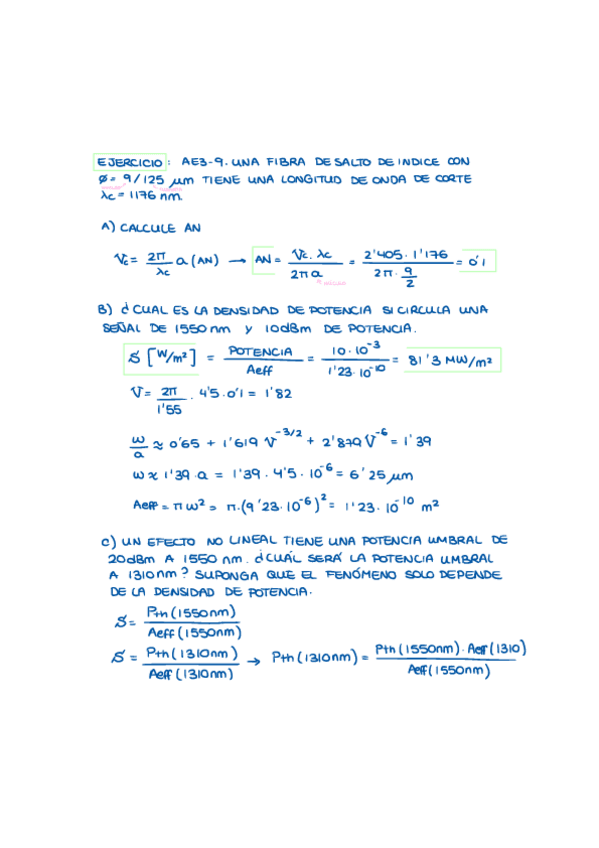 EJERCICIO: AE3-9. UNA FIBRA DE SALTO DE INDICE CON
Ø = 9/125 μm TIENE UNA LONGITUD DE ONDA DE CORTE
λc = 1176 nm
A) CALCULE AN
Vc = 2π/λc a (AN) → AN = Vc · λc / 2πa = 2'405 · 1'176 / 2π · 9/2 = 0'1
B) ¿CUAL ES LA DENSIDAD DE POTENCIA SI CIRCULA UNA
SEÑAL DE 1550 nm Y 10dBm DE POTENCIA.
S [W/m²] = POTENCIA / Aeff = 10 · 10⁻³ / 1'23 · 10⁻¹⁰ = 81'3 MW/m²
V = 2π/1'55 · 4'5 · 0'1 = 1'82
w/a ≈ 0'65 + 1'619 V^(-3/2) + 2'879 V⁻⁶ = 1'39
w ≈ 1'39 · a = 1'39 · 4'5 · 10⁻⁶ = 6'25 μm
Aeff = π w² = π · (9'23 · 10⁻⁶)² = 1'23 · 10⁻¹⁰ m²
C) UN EFECTO NO LINEAL TIENE UNA POTENCIA UMBRAL DE
20dBm A 1550 nm. ¿CUÁL SERÁ LA POTENCIA UMBRAL
A 1310 nm? SUPONGA QUE EL FENÓMENO SOLO DEPENDE
DE LA DENSIDAD DE POTENCIA.
S = Pth (1550nm) / Aeff (1550nm)
S = Pth (1310nm) / Aeff (1310nm) → Pth (1310nm) = Pth (1550nm) · Aeff (1310) / Aeff (1550nm)